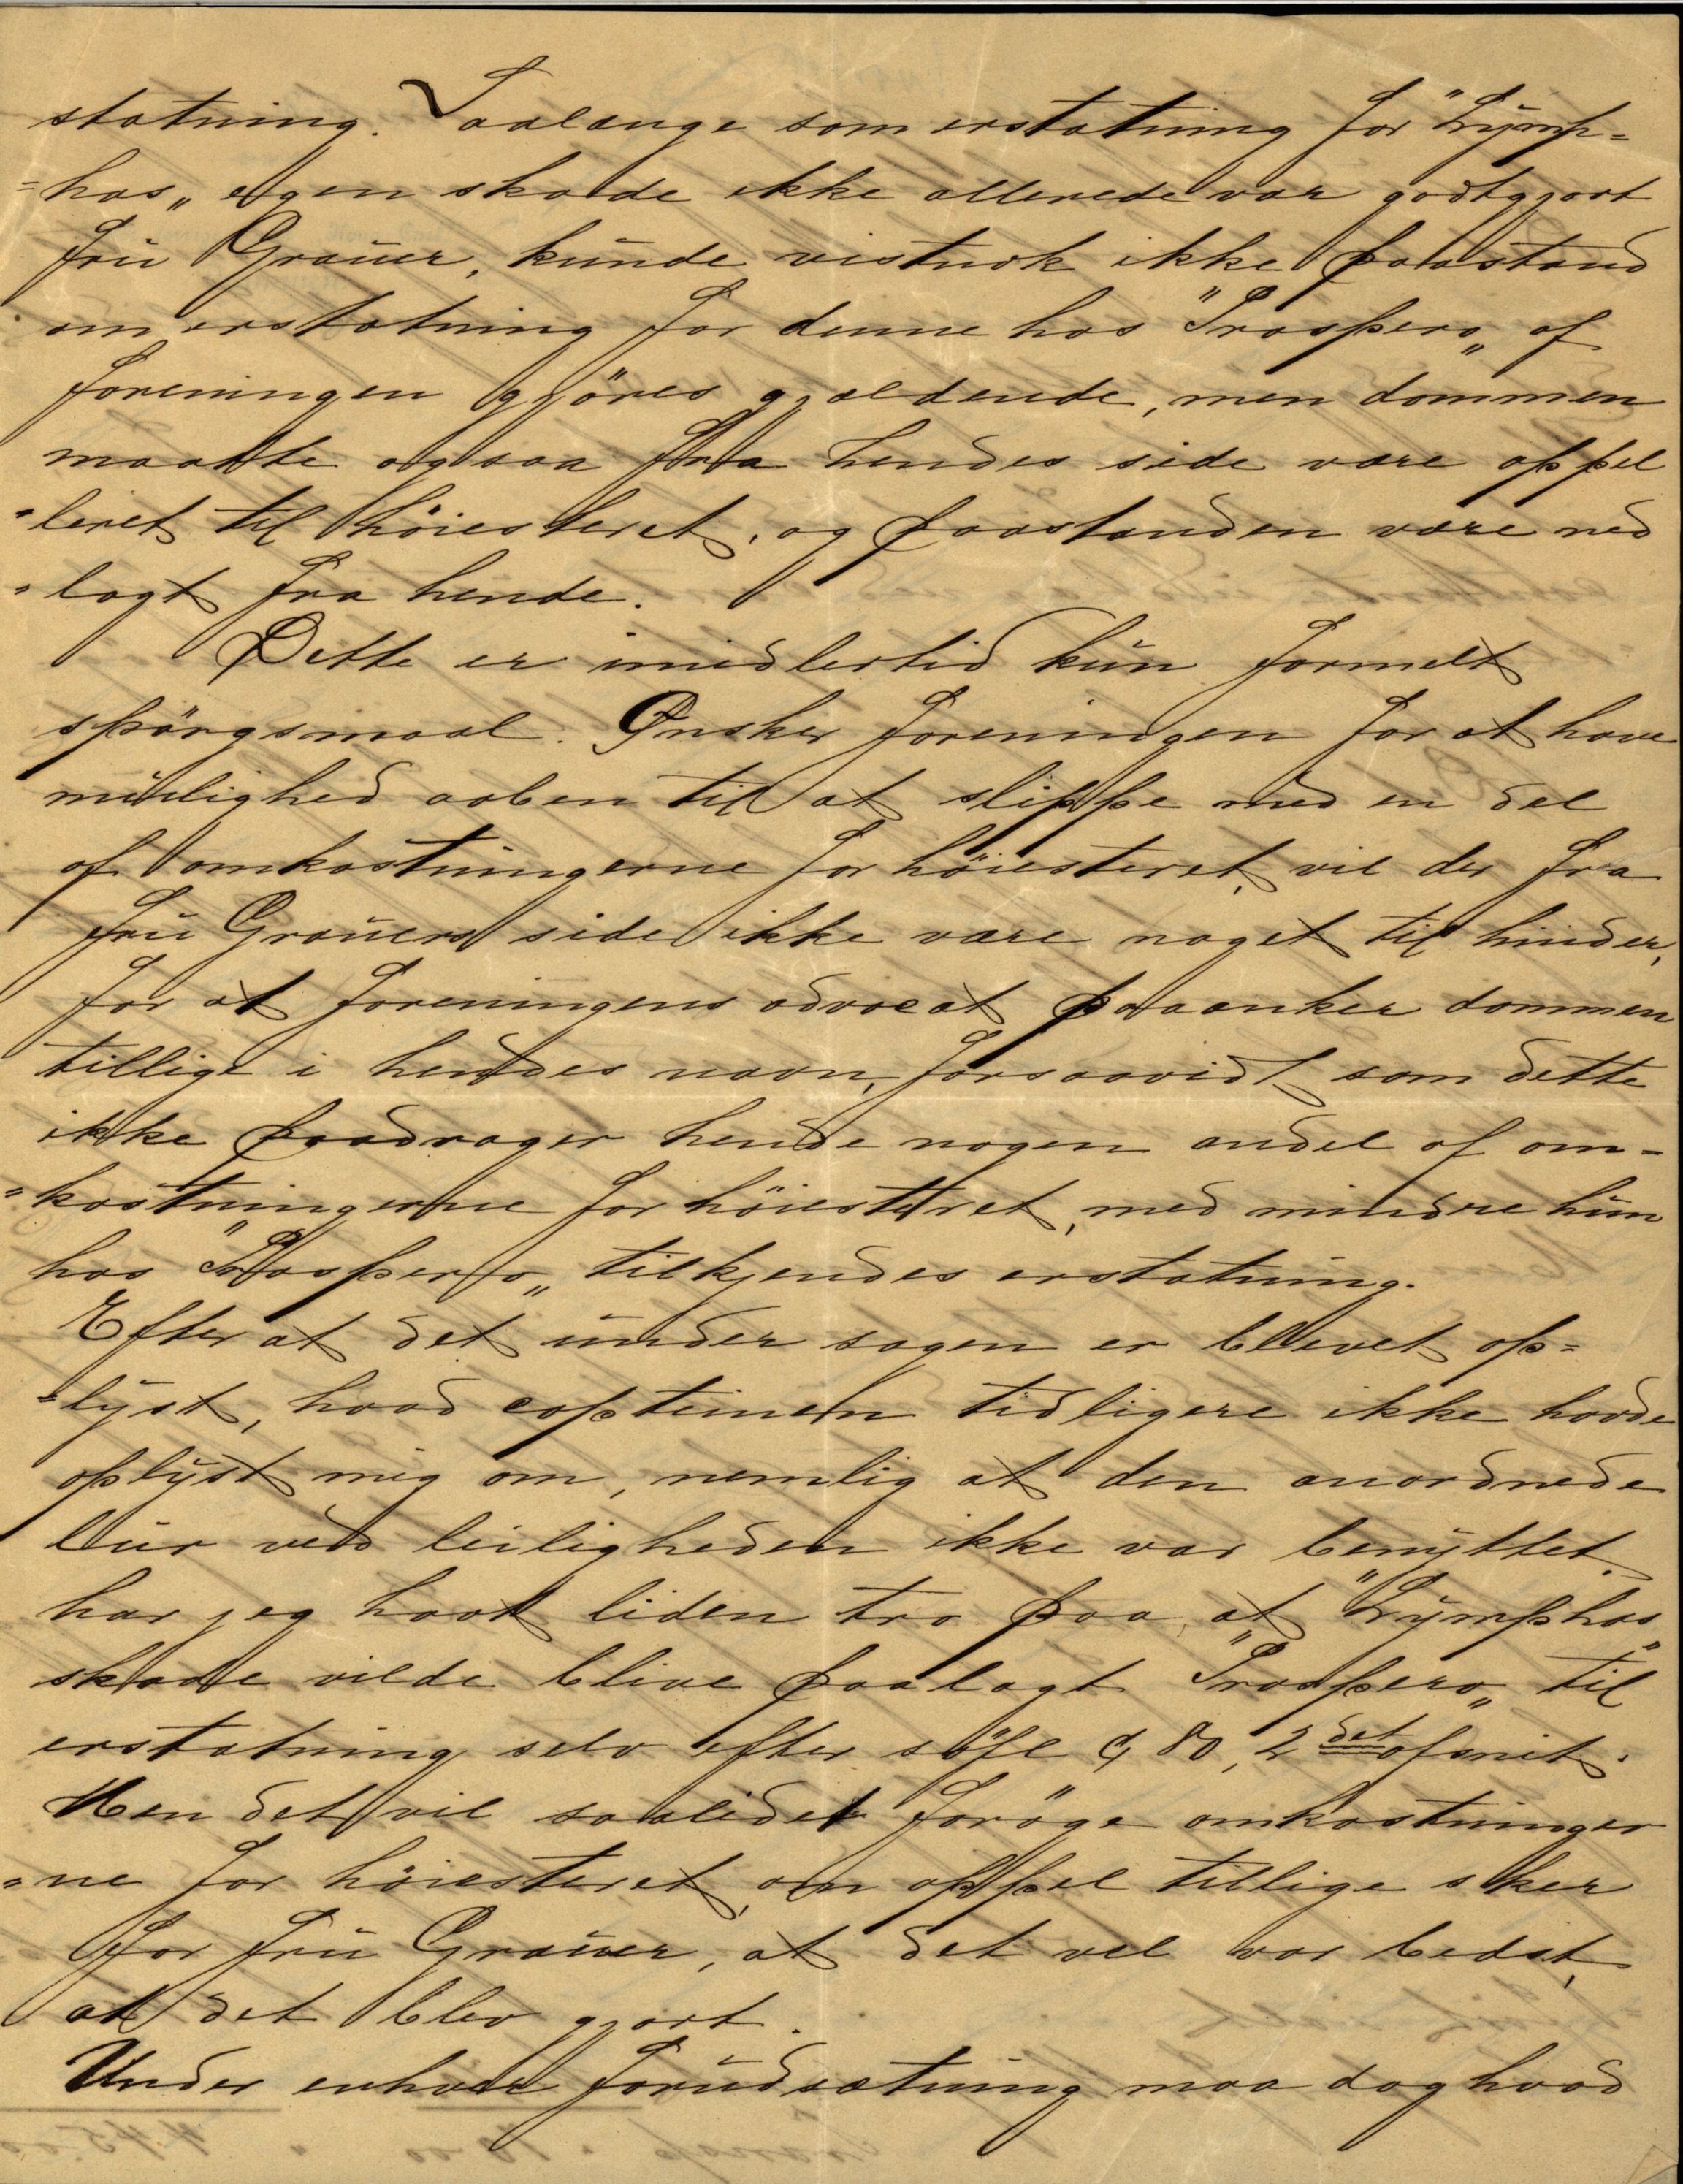 statning. Saalænge som erstatning for "Lymp=
=has„ egen skade ikke allerede var godtgjort
fru Grauer, kunde vistnok ikke paastand
om erstatning for denne hos "Prospero„ af
foreningen gjöres gjældende, men dommen
maatte ogsaa fra hendes side være appel
=leret til höiesteret, og paastanden være ned
=lagt fra hende.
Dette er imidlertid kun formelt
spörgsmaal. Ønsker foreningen for at have
mulighed aaben til at slippe med en del
af omkostningerne for höiesteret, vil der fra
fru Grauers side ikke være noget til hinder,
for at foreningens advocat paaanker dommen
tillige i hendes navn, forsaavidt som dette
ikke paadrager hende nogen andel af om=
=kostningerne for höiesteret, med mindre hun
hos "Prospero„ tilkjendes erstatning.
Efter at det under sagen er blevet op=
=lyst, hvad capteinen tidligere ikke havde
oplyst mig om, nemlig at den anordnede
lur ved leiligheden ikke var benyttet,
har jeg havt liden tro paa, at "Lymphas„
skade vilde blive paalagt "Prospero„ til
erstatning selv efter söfl § 80, 2det afsnit.
Men det vil saalidet foröge omkostninger
=ne for höiesteret, om appel tillige sker
for fru Grauer, at det vel var bedst,
at det blev gjort.
Under enhver forudsætning maa dog hvad